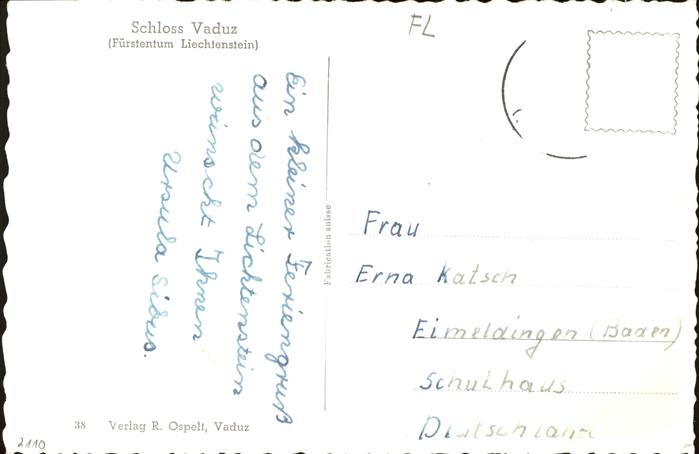 Schloss Vaduz
(Fürstentum Liechtenstein)
FL
Ein kleiner Feriengruß
aus dem Lichtenstein
wünscht Ihnen
Ursula Sibus.
Fabrication suisse
Frau
Erna Katsch
Eimeldingen (Baden)
Schulhaus
Deutschland
38 Verlag R. Ospelt, Vaduz
2110